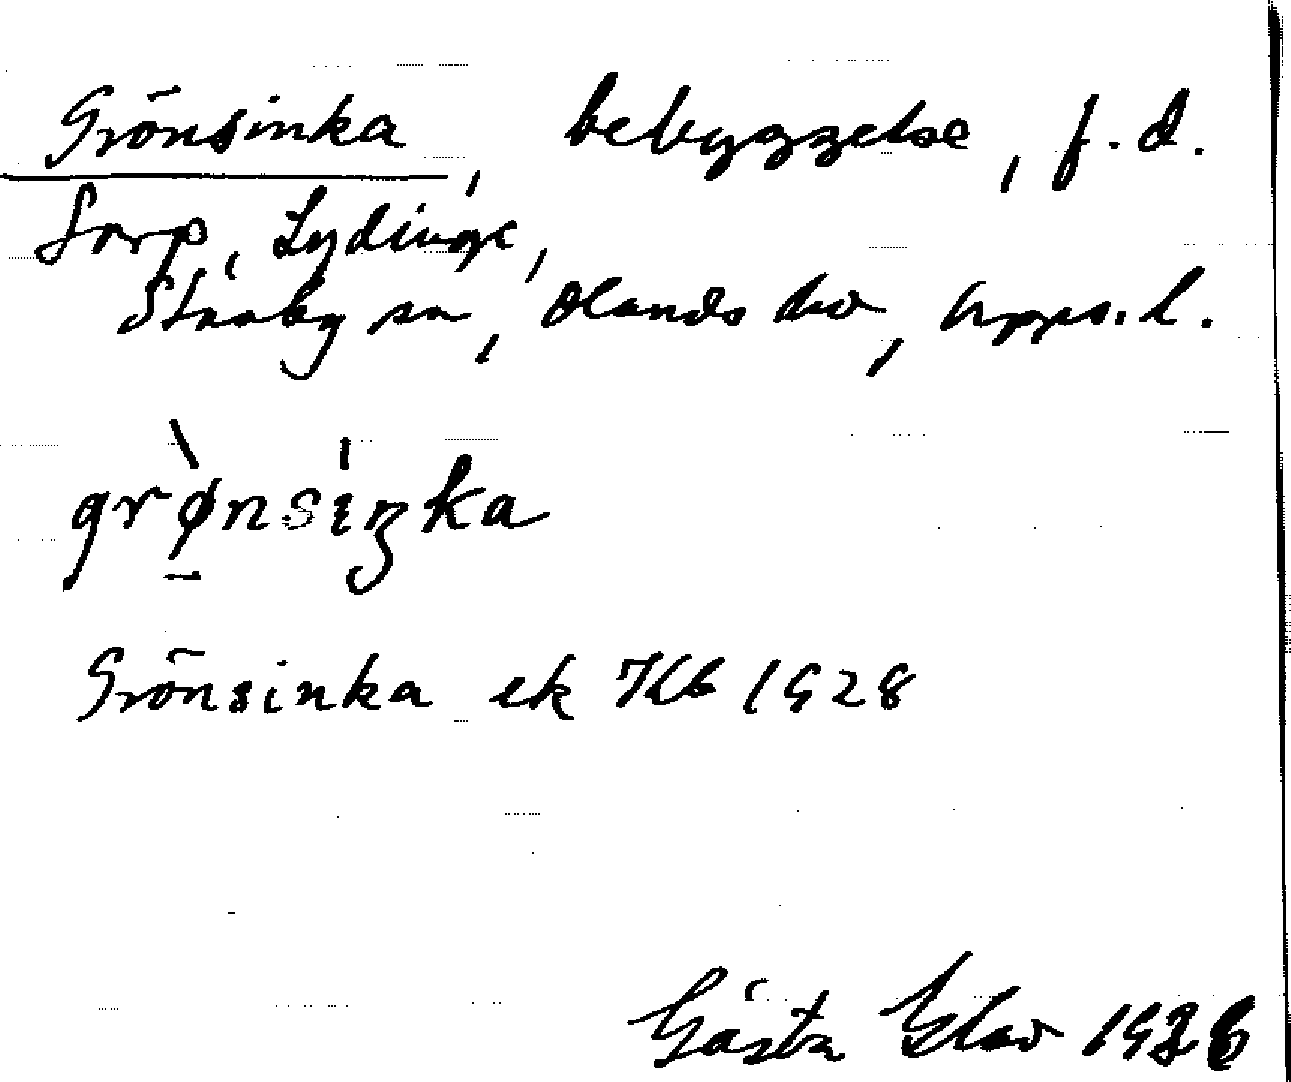 Grönsinka, bebyggelse, f.d.
torp, Lydinge,
Stavby sn, Olands hd, Upps.l.
grø̀nsìŋka
Grönsinka ek Kb 1928
Gösta 1928